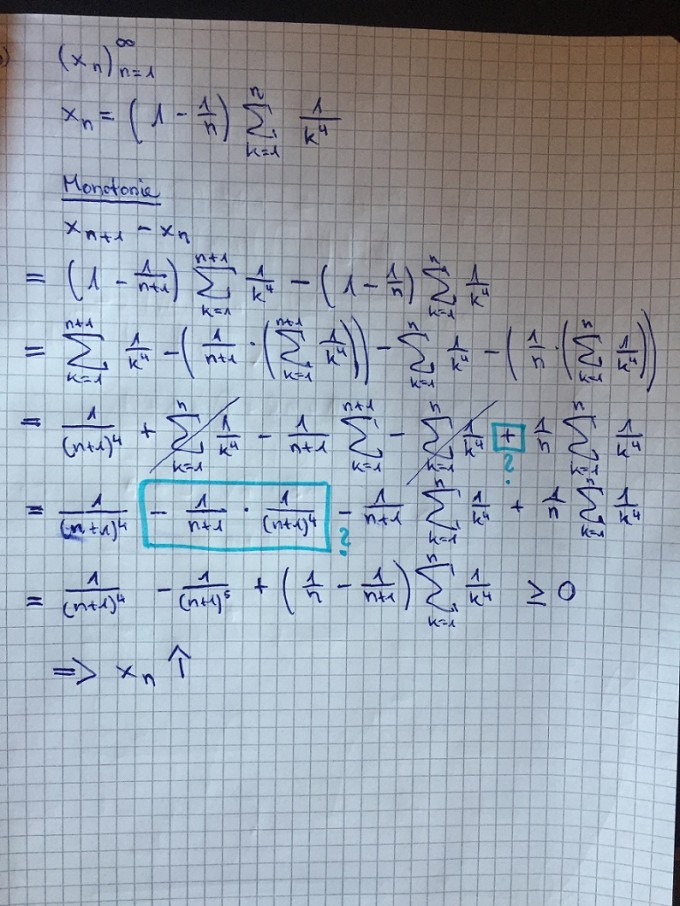 )
(xₙ)ₙ₌₁^∞
xₙ = (1 - 1/n) ∑_{k=1}^{n} 1/k⁴
Monotonie
xₙ₊₁ - xₙ
= (1 - 1/(n+1)) ∑_{k=1}^{n+1} 1/k⁴ - (1 - 1/n) ∑_{k=1}^{n} 1/k⁴
= ∑_{k=1}^{n+1} 1/k⁴ - (1/(n+1) · (∑_{k=1}^{n+1} 1/k⁴)) - ∑_{k=1}^{n} 1/k⁴ - (1/n · (∑_{k=1}^{n} 1/k⁴))
= 1/(n+1)⁴ + ∑_{k=1}^{n} 1/k⁴ - 1/(n+1) ∑_{k=1}^{n+1} - ∑_{k=1}^{n} 1/k⁴ + 1/n ∑_{k=1}^{n} 1/k⁴
?
= 1/(n+1)⁴ - 1/(n+1) · 1/(n+1)⁴ - 1/(n+1) ∑_{k=1}^{n} 1/k⁴ + 1/n ∑_{k=1}^{n} 1/k⁴
?
= 1/(n+1)⁴ - 1/(n+1)⁵ + (1/n - 1/(n+1)) ∑_{k=1}^{n} 1/k⁴ ≥ 0
=> xₙ ↑